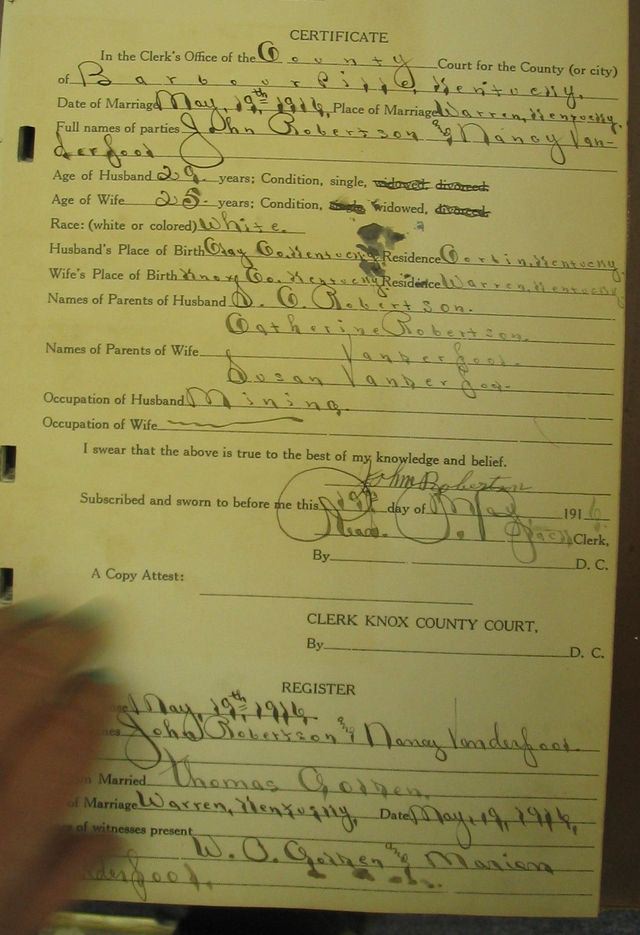 CERTIFICATE
In the Clerk's Office of the County Court for the County (or city)
of Barbourville, Kentucky.
Date of Marriage May, 19th 1916, Place of Marriage Warren, Kentucky.
Full names of parties John Robertson and Nancy Van-
derfool
Age of Husband 29. years; Condition, single, widowed, divorced
Age of Wife 25. years; Condition, single widowed, divorced
Race: (white or colored) White.
Husband's Place of Birth Clay Co. Kentucky Residence Corbin, Kentucky
Wife's Place of Birth Knox Co. Kentucky. Residence Warren, Kentucky
Names of Parents of Husband Robertson.
Catherine Robertson.
Names of Parents of Wife Vanderfool.
Susan Vanderfool-
Occupation of Husband Mining.
Occupation of Wife
I swear that the above is true to the best of my knowledge and belief.
John Robertson
Subscribed and sworn to before me this 19th day of May 1916
Clerk,
By D. C.
A Copy Attest:
CLERK KNOX COUNTY COURT,
By D. C.
REGISTER
May, 19th, 1916,
John Robertson and Nancy Vanderfool
Married Thomas
of Marriage Warren, Kentucky, Date May, 19, 1916,
of witnesses present
W. and Marion
derfool,